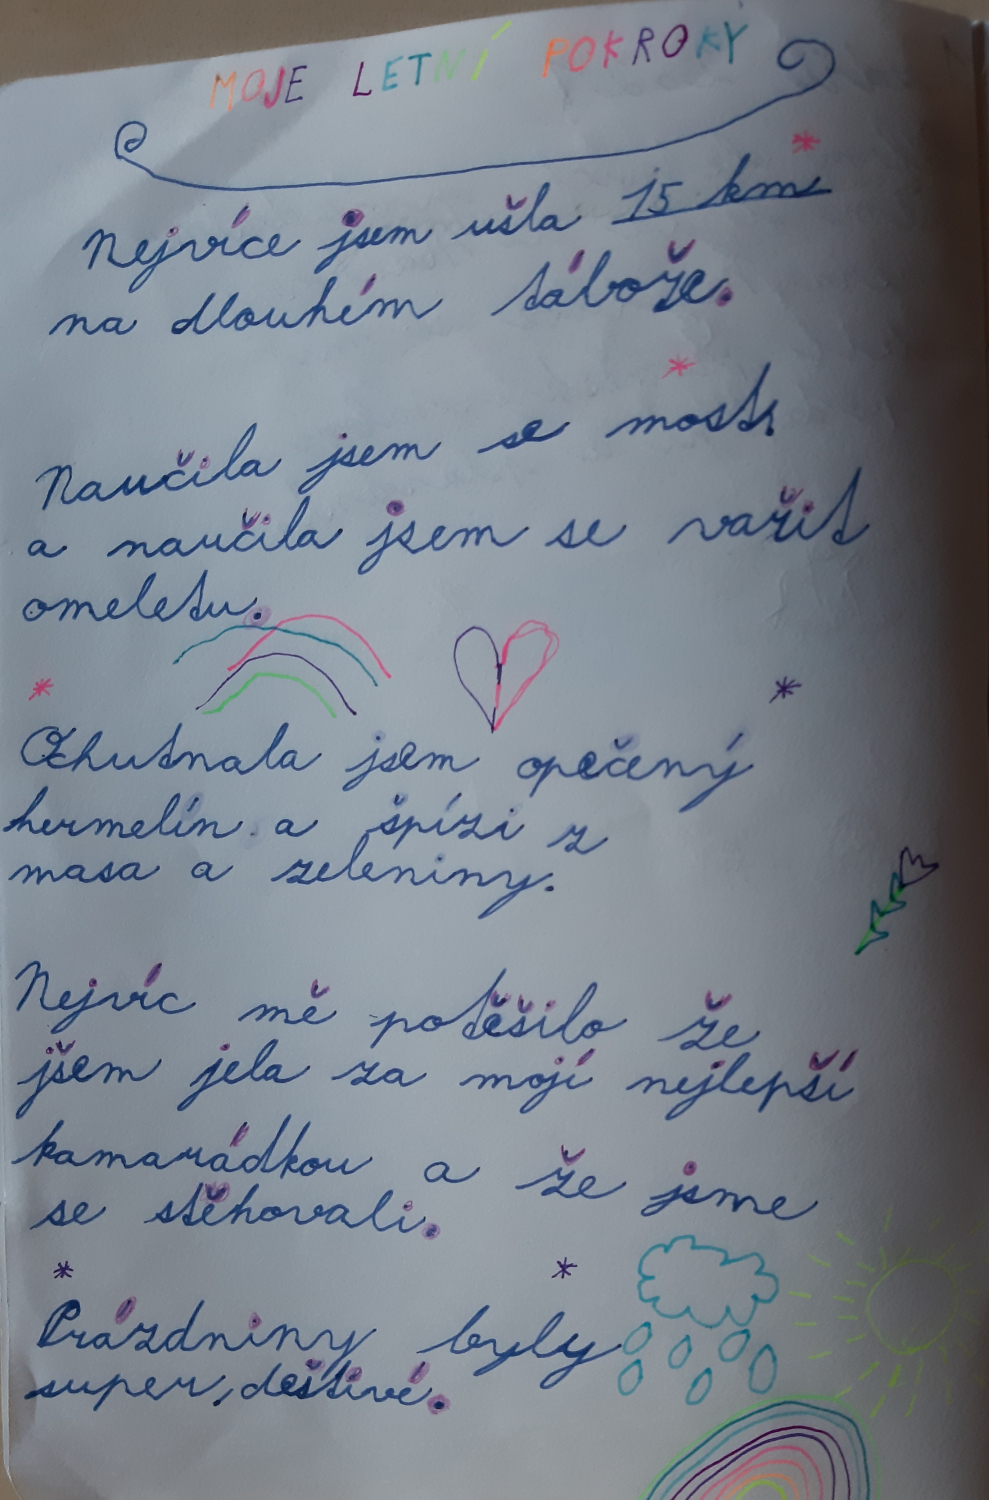 MOJE LETNÍ POKROKY
Nejvíce jsem ušla 15 km
na dlouhém táboře.
Naučila jsem se most.
a naučila jsem se vařit
omeletu.
Ochutnala jsem opečený
hermelín a špízi z
masa a zeleniny.
Nejvíc mě potěšilo že
jsem jela za mojí nejlepší
kamarádkou a že jsme
se stěhovali.
Prázdniny byly
super, deštivé.